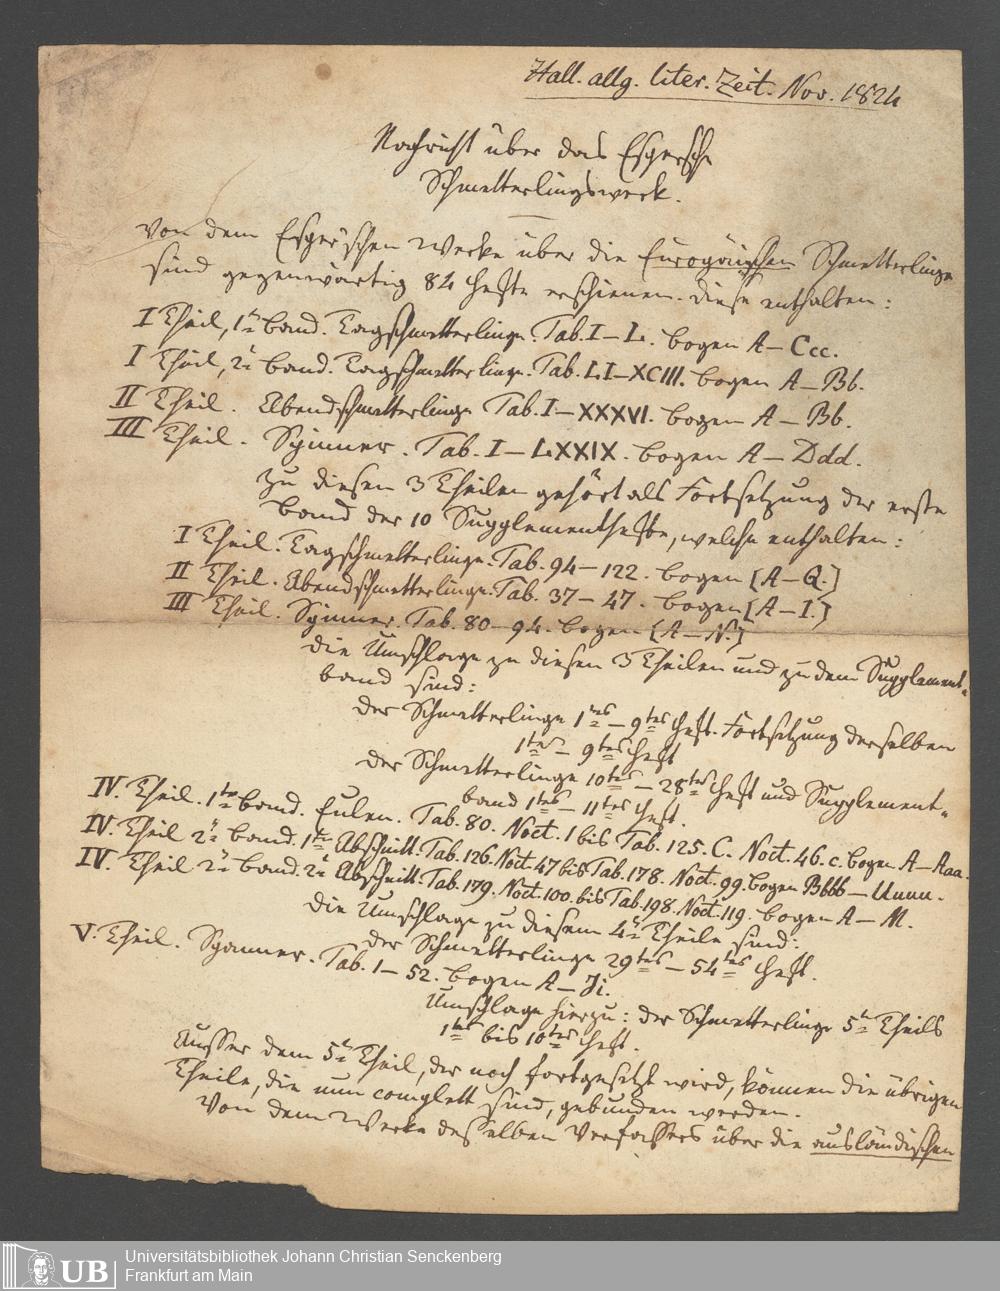 Hall. allg. liter. Zeit. Nov. 1824
Nachricht über das Espersche
Schmetterlingswerk.
Von dem Esper'schen Werke über die Europäischen Schmetterlinge
sind gegenwärtig 84 Hefte erschienen. Diese enthalten:
I Theil, 1r Band. Tagschmetterlinge. Tab. I – L. Bogen A – Ccc.
I Theil, 2r Band. Tagschmetterlinge. Tab. LI – XCIII. Bogen A – Bb.
II Theil. Abendschmetterlinge Tab. I – XXXVI. Bogen A – Bb.
III Theil. Spinner. Tab. I – LXXIX. Bogen A – Ddd.
Zu diesen 3 Theilen gehört als Fortsetzung der erste
Band der 10 Supplementhefte, welche enthalten:
I Theil. Tagschmetterlinge. Tab. 94 – 122. Bogen [A – Q.]
II Theil. Abendschmetterlinge. Tab. 37 – 47. Bogen [A – I.]
III Theil. Spinner. Tab. 80 – 94. Bogen [A – N.]
Die Umschlage zu diesen 3 Theilen und zu dem Supplement-
band sind:
Der Schmetterlinge 1tes – 9tes Heft. Fortsetzung derselben
1tes – 9tes Heft
Der Schmetterlinge 10tes – 28tes Heft und Supplement-
band 1tes – 11tes Heft.
IV. Theil. 1ter Band. Eulen. Tab. 80. Noct. 1 bis Tab. 125. C. Noct. 46. c. Bogen A – Aaa.
IV. Theil 2r Band. 1ter Abschnitt. Tab. 126. Noct. 47 bis Tab. 178. Noct. 99. Bogen Bbbb – Uuuu.
IV. Theil 2r Band. 2r Abschnitt. Tab. 179. Noct. 100. bis Tab. 198. Noct. 119. Bogen A – M.
Die Umschlage zu diesem 4n Theile sind:
Der Schmetterlinge 29tes – 54tes Heft.
V. Theil. Spanner. Tab. 1 – 52. Bogen A – Ii.
Umschlage hierzu: der Schmetterlinge 5n Theils
1tes bis 10tes Heft.
Ausser dem 5n Theil, der noch fortgesetzt wird, können die übrigen
Theile, die nun complett sind, gebunden werden.
Von dem Werke desselben Verfassers über die ausländischen
UB Universitätsbibliothek Johann Christian Senckenberg
Frankfurt am Main